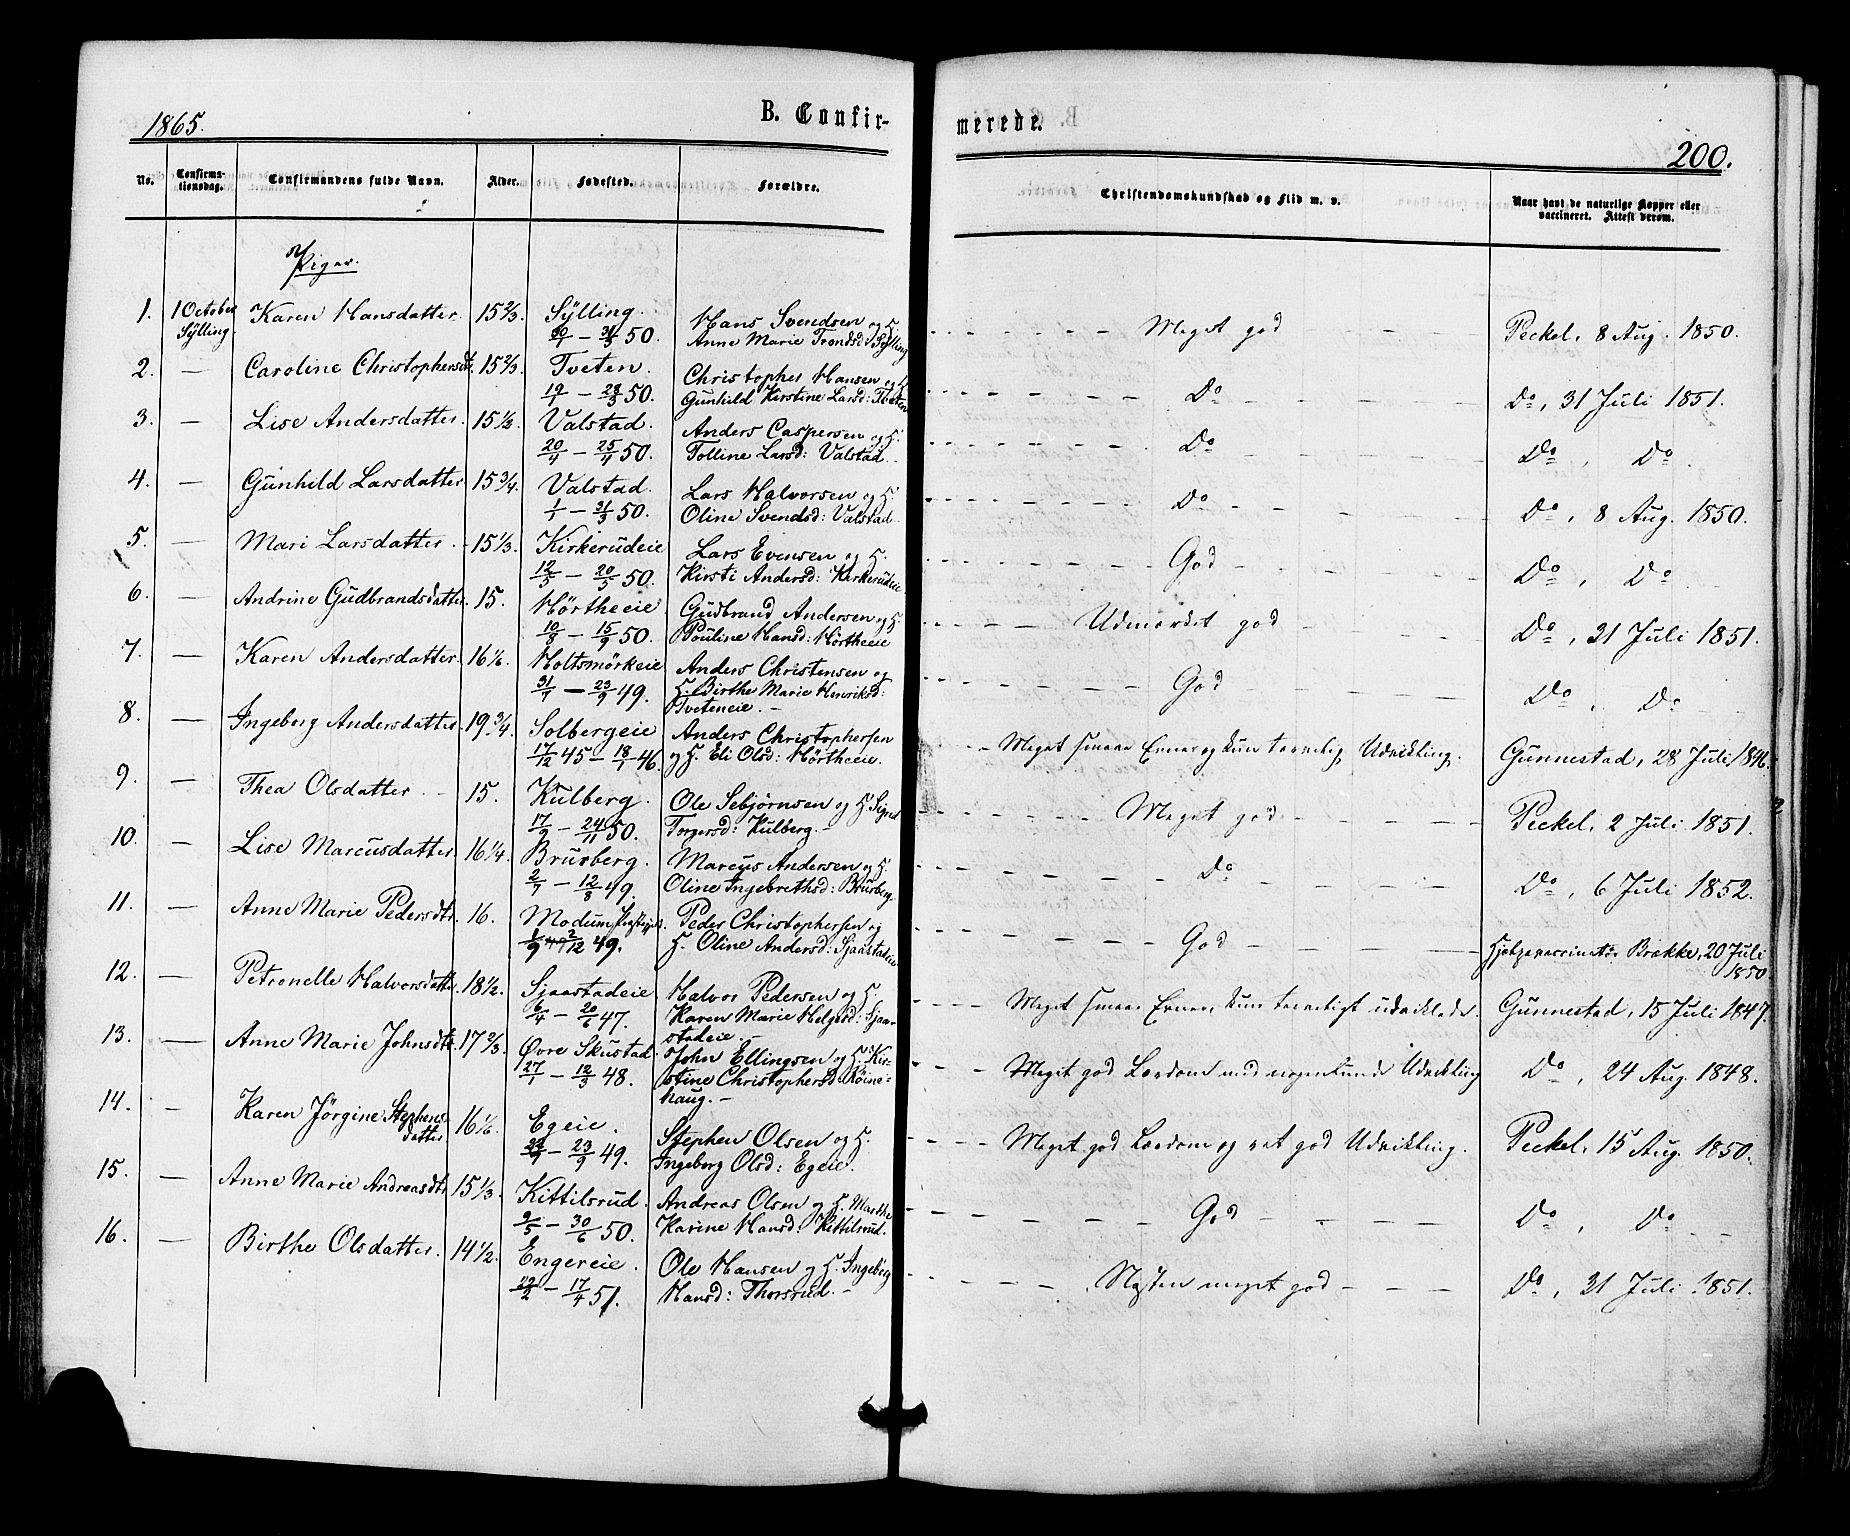 1865.
B. Confir-
merede.
200.
No. Confirma-tionsdag. Confirmandens fulde Navn. Alder. Fødested. Forældre. Christendomskundskab og Flid m. v. Naar havt de naturlige Kopper eller vaccineret. Attest derom.
Piger.
1. 1 October Sylling. Karen Hansdatter. 15 2/3. Sylling. Hans Svendsen og H. Anne Marie Trondsd: Sylling Meget god Peckel, 8 Aug. 1850.
2. — Caroline Christophersdtr. 15 2/3. Tveten. 19/1 – 50. Christopher Hansen og H. Gunhild Kirstine Larsd: Tveten Do Do, 31 Juli 1851.
3. — Lise Andersdatter. 15 1/2. Valstad. 50. Anders Caspersen og H. Tolline Larsd: Valstad. Do Do, Do.
4. — Gunhild Larsdatter. 15 3/4. Valstad. 1/1 – 31/3 50. Lars Halvorsen og H. Oline Svendsd: Valstad. Do Do, 8 Aug. 1850.
5. — Mari Larsdatter. 15 1/3. Kirkerudeie 12/5 – 20/5 50. Lars Evensen og H. Kirsti Andersd: Kirkerudeie God Do, Do
6. — Andrine Gudbrandsdatter. 15. Hörtheeie 10/8 – 15/9 50. Gudbrand Andersen og H. Pouline Hansd: Hörtheeie Udmærket god Do, 21 Juli 1851.
7. — Karen Andersdatter. 16 1/6. Holtsmörkeie 31/7 – 23/9 49. Anders Christensen og H. Birthe Marie Henriksd: Tveteneie. – God Do, Do
8. — Ingeborg Andersdatter. 19 3/4. Solbergeie 17/12 45 – 18/1 46. Anders Christophersen og H. Eli Olsd: Hörtheeie. Meget smaae Evner og kun tarvelig Udvikling. Gunnestad, 28 Juli 1846.
9. — Thea Olsdatter. 15. Kulberg. 17/9 – 24/11 50. Ole Sebjørnsen og H. Sigrid Torgersd: Kulberg. – Meget god Peckel, 2 Juli 1851.
10. — Lise Marcusdatter 16 1/4. Brurberg. 2/7 – 12/8 49. Marcus Andersen og H. Oline Ingebrethsd: Brurberg. Do Do, 6 Juli 1852.
11. — Anne Marie Pedersdtr. 16. Modum 49. Peder Christophersen og H. Oline Andersd: Sjaastadeie God Hjelpevaccinatör Brække, 20 Juli 1850
12. — Petronelle Halvorsdatter. 18 1/2. Sjaastadeie 6/4 – 20/6 47. Halvor Pedersen og H. Karen Marie Helgesd: Sjaa-stadeie. – Meget smaae Evner, kun tarveligt udviklede. Gunnestad, 15 Juli 1847.
13. — Anne Marie Johnsdtr. 17 2/3. Øvre Skustad. 27/1 – 12/3 48. John Ellingsen og H. Kir-stine Christophersd: haug. – Meget god Lærdom med nogenlunde Udvikling Do, 24 Aug. 1848.
14. — Karen Jörgine Stephensdatter 16 1/6. Egeie. – 23/9 49. Stephen Olsen og H. Ingeborg Olsd: Egeie. Meget god Lærdom og ret god Udvikling. Peckel, 15 Aug. 1850.
15. Anne Marie Andreasdtr 15 1/3. Kittilsrud. 2/5 – 30/6 50. Andreas Olsen og H. Marthe Karine Hansd: Kittilsrud. God Do, Do
16. — Birthe Olsdatter. 14 1/2. Engereie. – 17/4 51. Ole Hansen og H. Ingeborg Hansd: Thorsrud. – Næsten meget god Do, 21 Juli 1851.